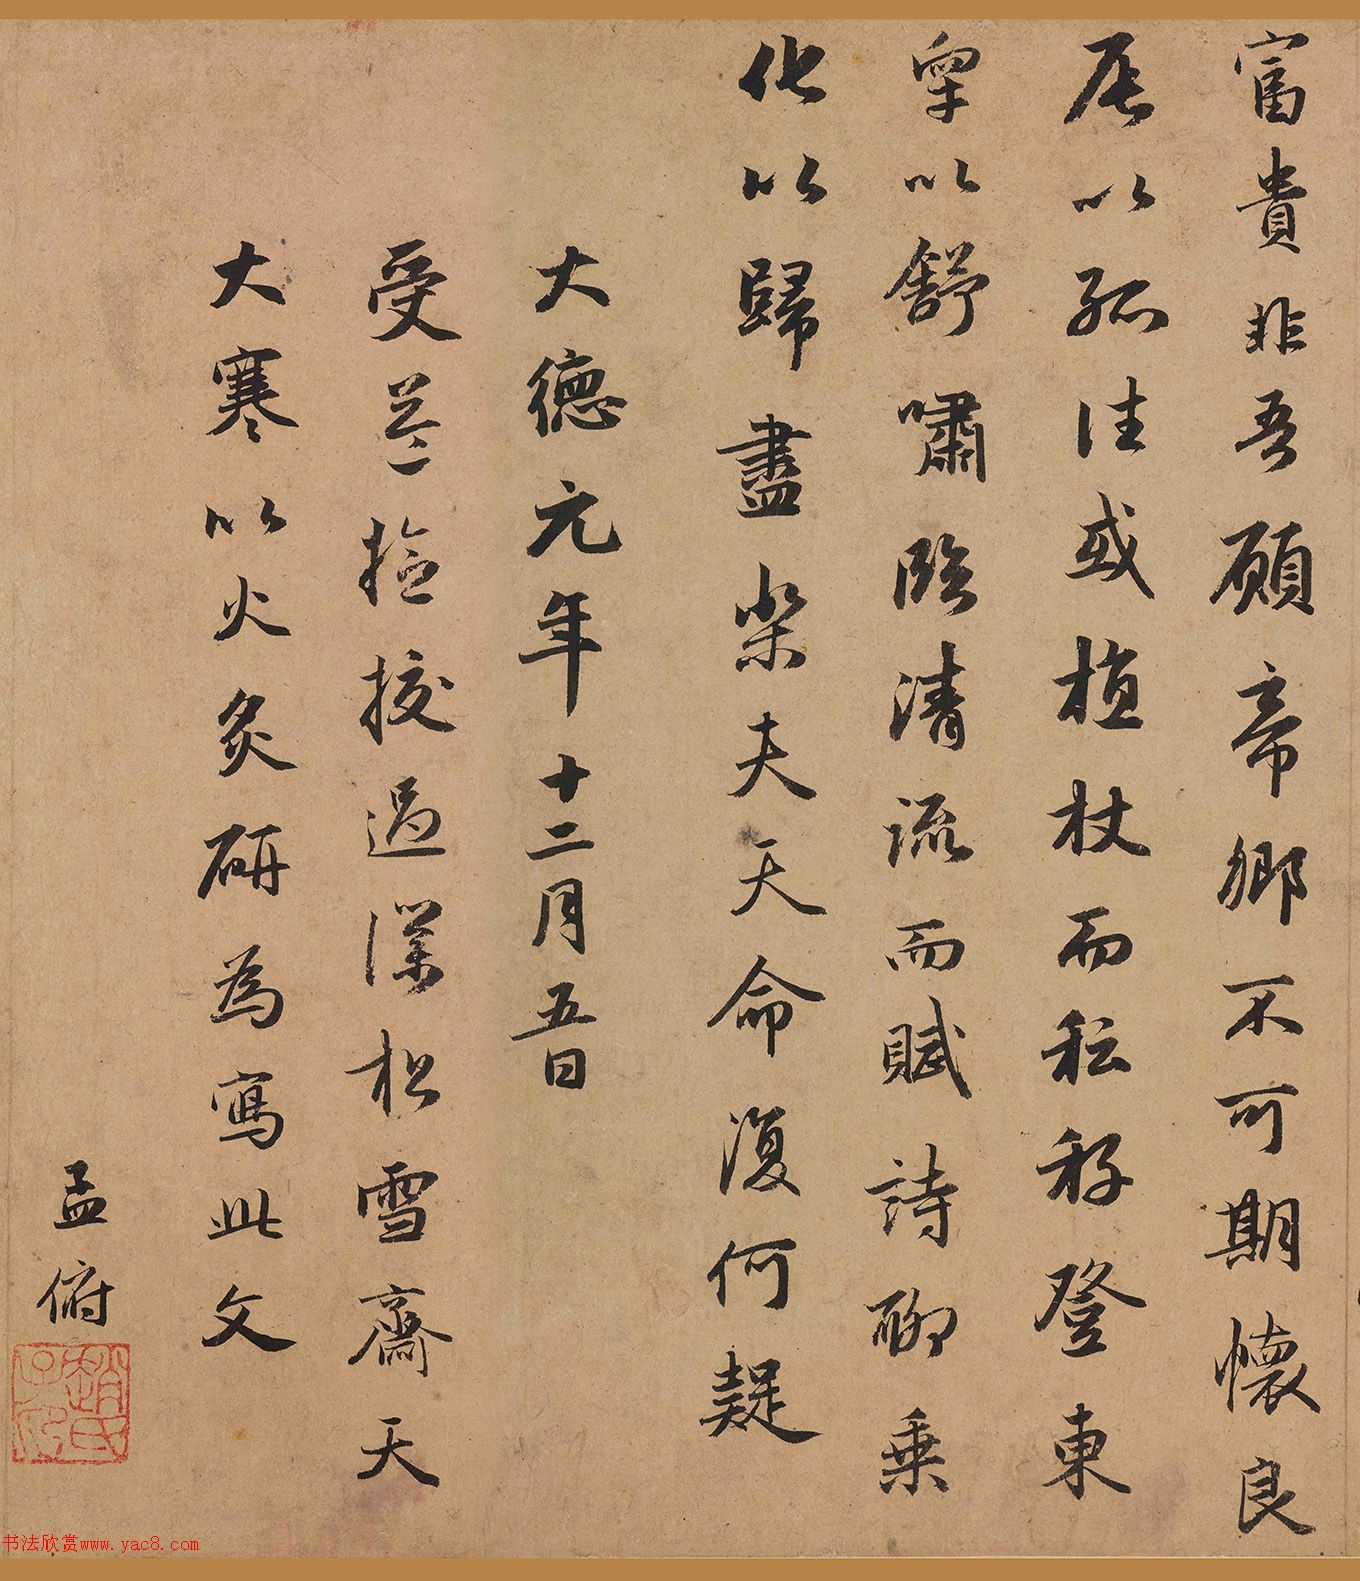 富貴非吾願帝鄉不可期懷良
辰以孤往或植杖而耘耔登東
皐以舒嘯臨清流而賦詩聊乗
化以歸盡樂夫天命復何疑
大德元年十二月五日
受益撿挍過僕松雪齋天
大寒以火炙研為寫此文
孟頫
趙氏子昂
书法欣赏www.yac8.com